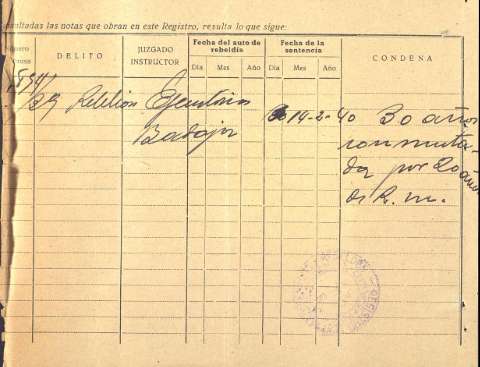 sultadas las notas que obran en este Registro, resulta lo que sigue:
DELITO
JUZGADO INSTRUCTOR
Fecha del auto de rebeldía
Fecha de la sentencia
CONDENA
Día Mes Año Día Mes Año
Rebelion Ejecutorias 14-2-40 30 años
Badajoz conmuta-
da por 20 años
de R. m.